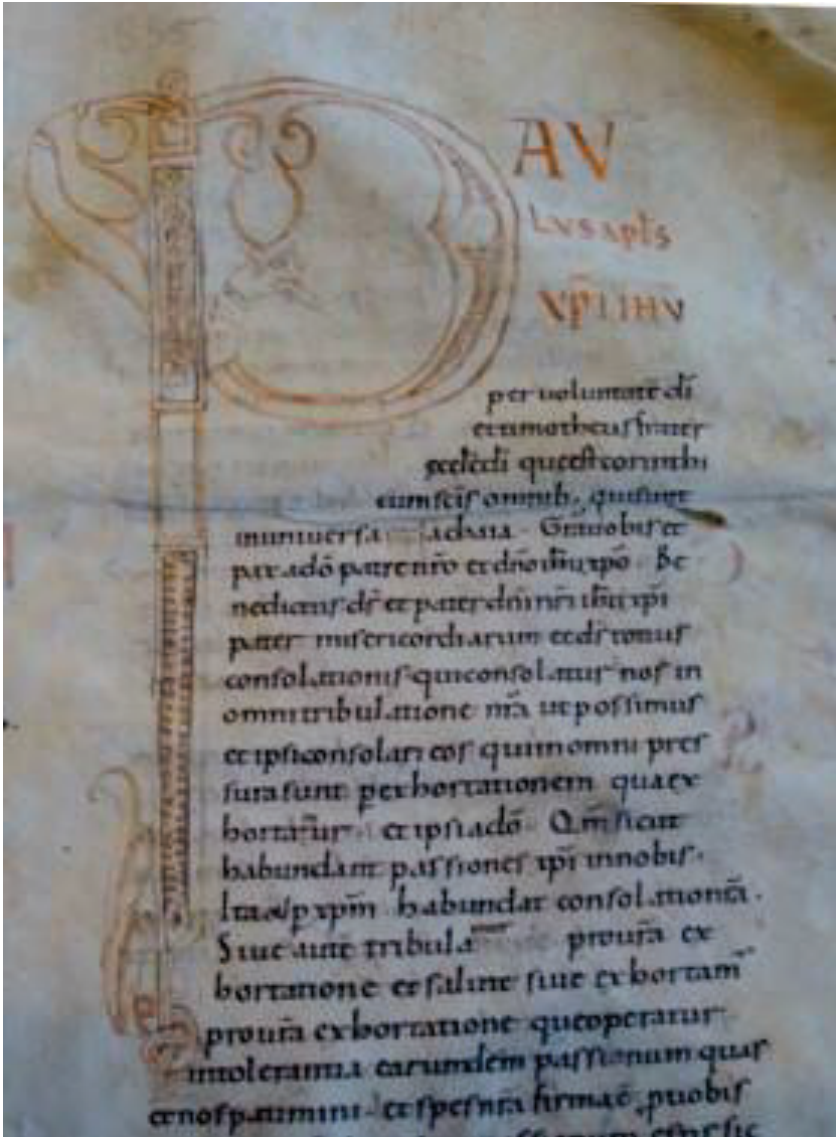 P AV
LVS apłs
XP̄I IHV
per uoluntatē dī
et timotheus frater
ęcclę dī que est corinthi
cum scīs omnib; qui sunt
in uniuersa achaia. Grā uobis et
pax a dō patre nrō et dnō ihū xpō. Be
nedictus ds̄ et pater dnī nrī ihū xpī
pater misericordiarum et ds̄ totius
consolationis qui consolatur nos in
omni tribulatione nrā ut possimus
et ipsi consolari eos qui in omni pres
sura sunt per exhortationem qua ex
hortamur et ipsi a dō. Qm̄ sicut
habundant passiones xpī in nobis.
Ita et p xpm̄ habundat consolatio nrā.
Siue autē tribula pro urā ex
hortatione et salute siue exhortam̄
pro urā exhortatione que operatur
in tolerantia earumdem passionum quas
et nos patimur. et spes nrā firma ē, p uobis